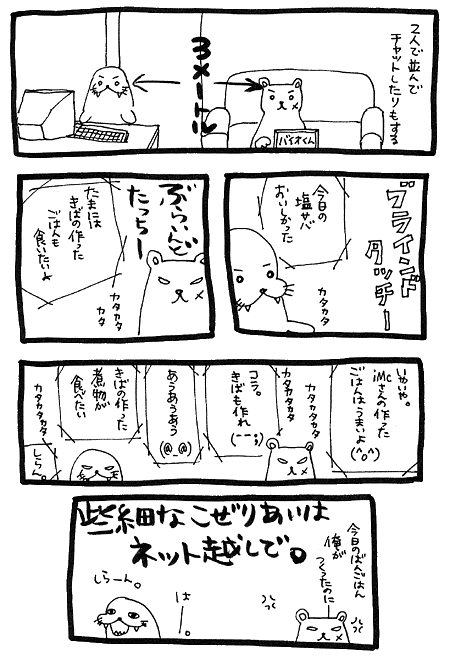 2人で並んで
チャットしたりもする
3メートル
バイオくん
ブラインド
タッチー
今日の
塩サバ
おいしかった
カタカタ
ぶらいんど
たっちー
たまには
きばの作った
ごはんも
食いたいよ
カタカタ
カタカタ
いやいや。
iMcさんの作った
ごはんはうまいよ
(^o^)
カタカタ
カタカタカタ
コラ。
きばも作れ
(ーー;)
あうあうあう
(@_@)
きばの作った
煮物が
食べたい
カタカタカタカタ
しらん。
些細なこぜりあいは
ネット越しで。
今日のばんごはん
俺が
つくったのに
はー。
しらーん。